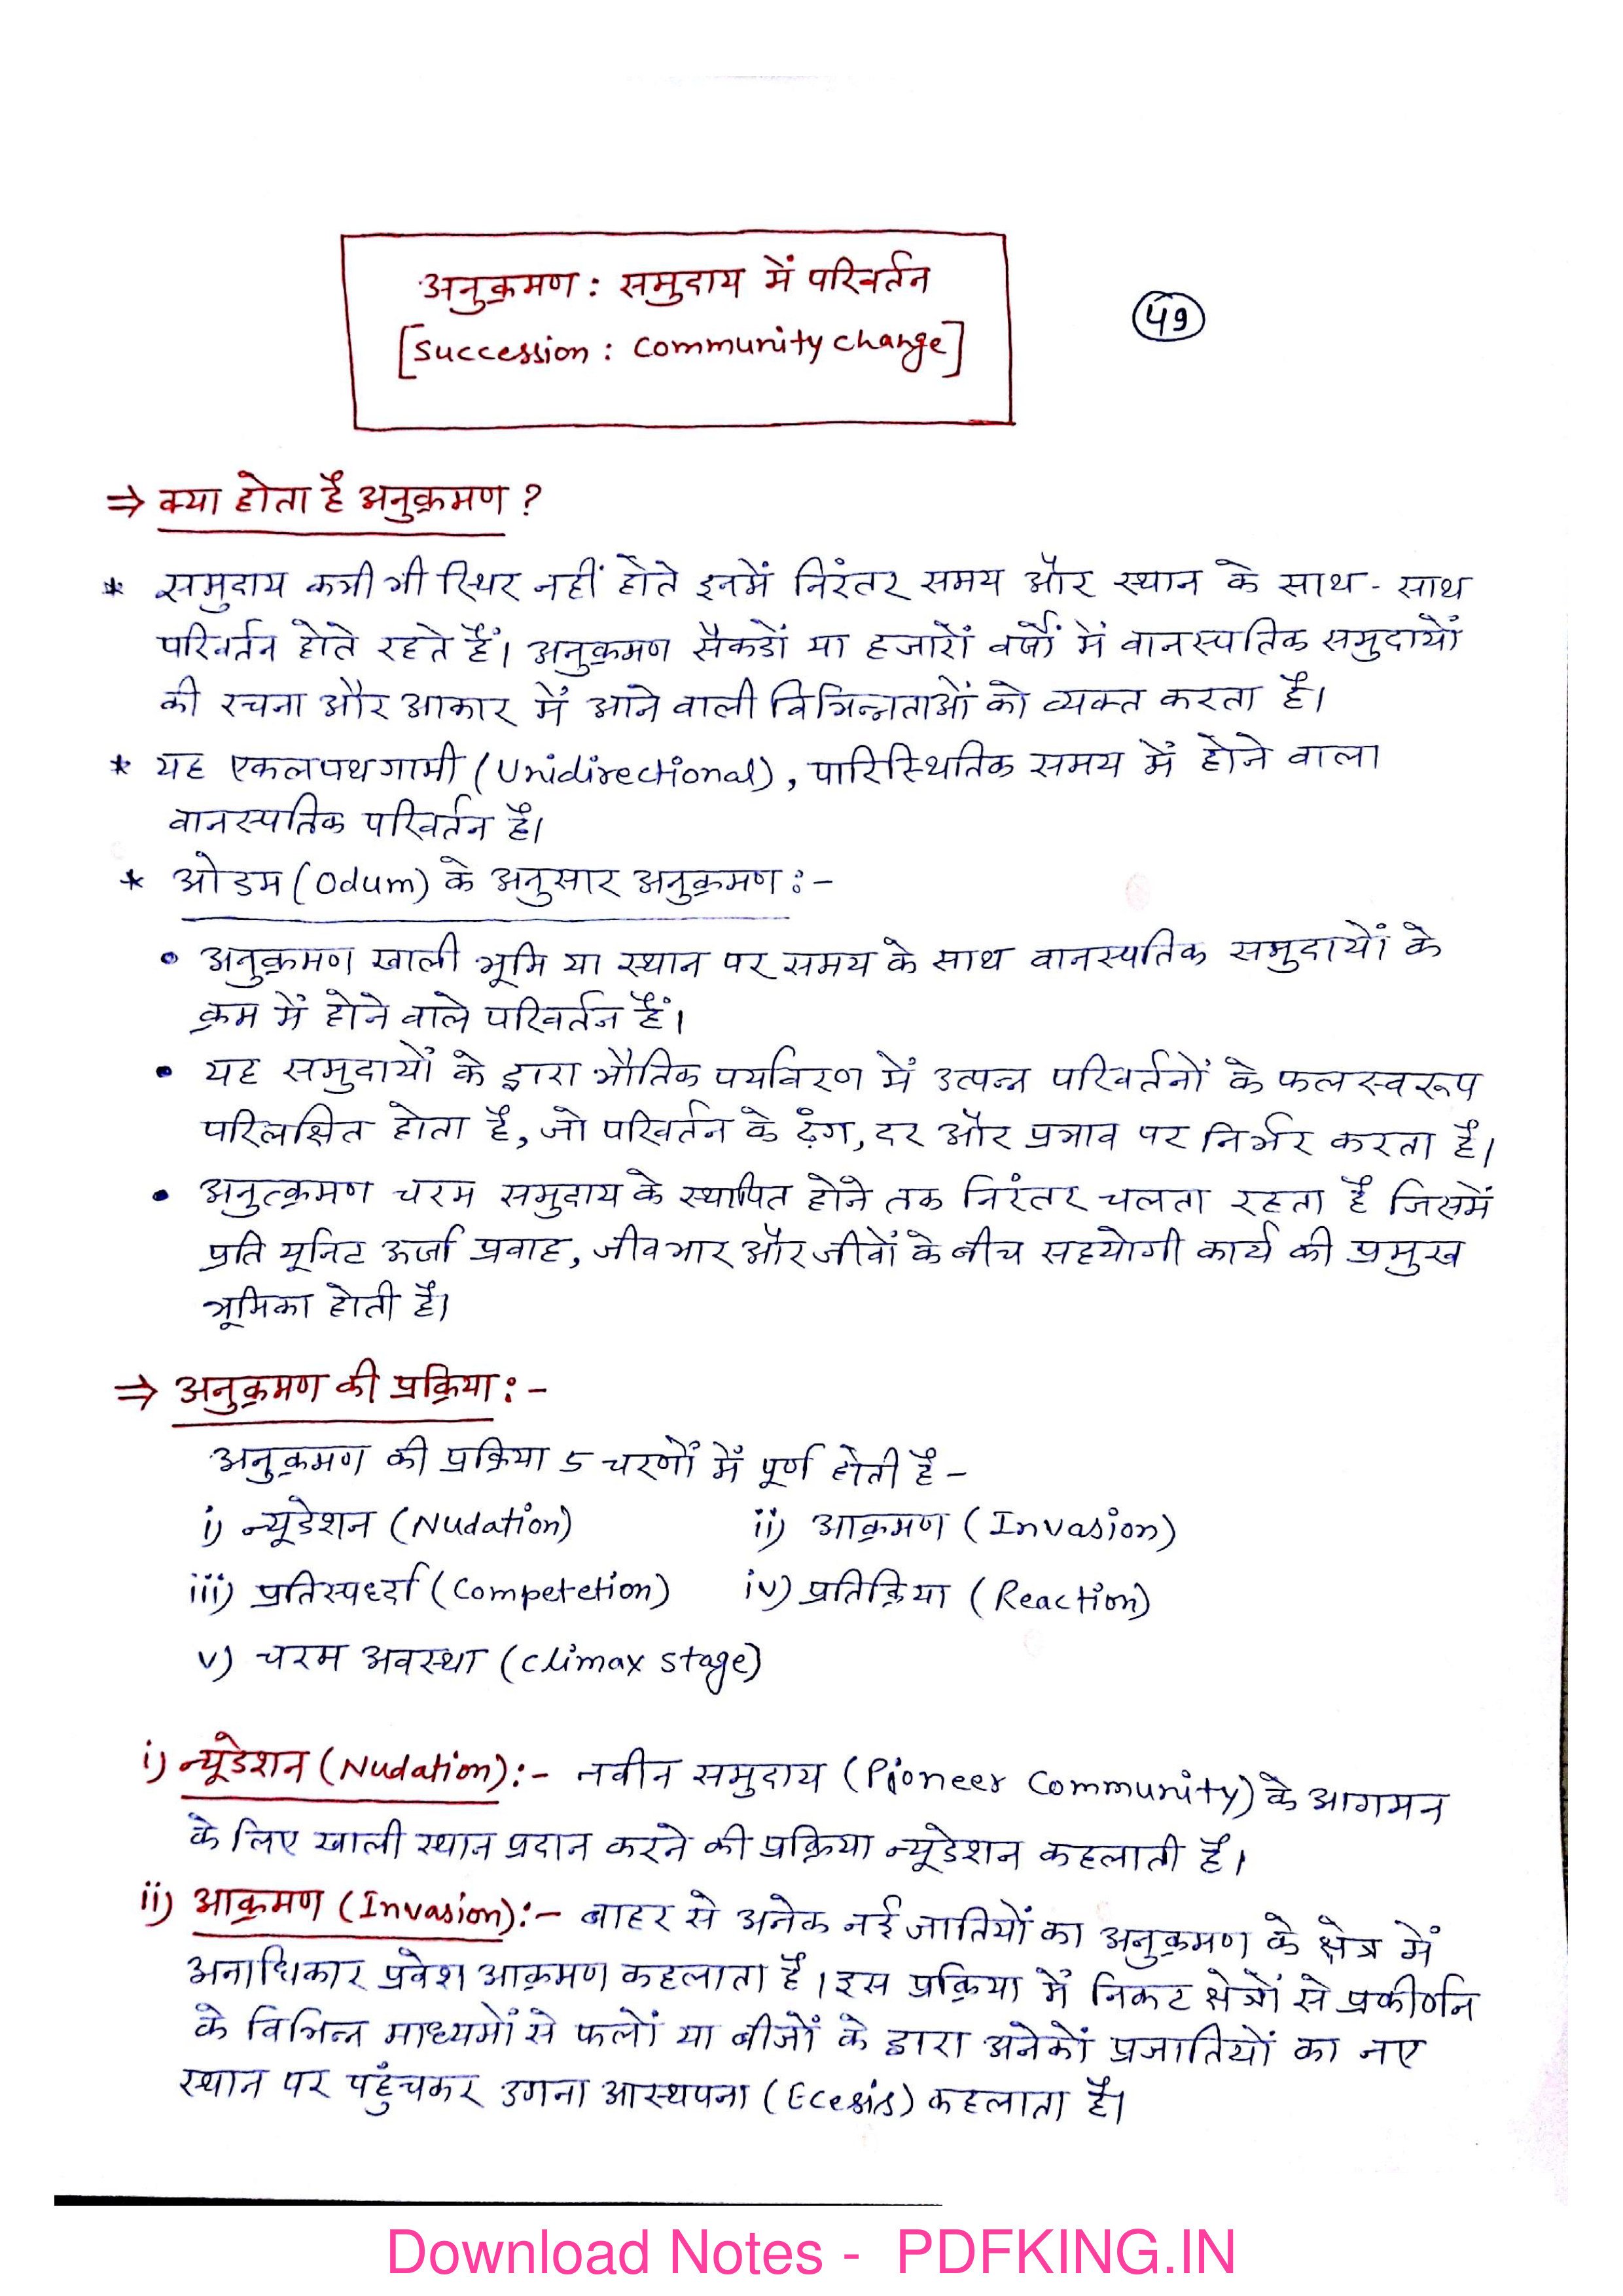 अनुक्रमण : समुदाय में परिवर्तन
[Succession : Community change]
49
⇒ क्या होता है अनुक्रमण ?
* समुदाय कभी भी स्थिर नहीं होते इनमें निरंतर समय और स्थान के साथ - साथ
परिवर्तन होते रहते हैं। अनुक्रमण सैकडों या हजारों वर्षों में वानस्पतिक समुदायों
की रचना और आकार में आने वाली विभिन्नताओं को व्यक्त करता है।
* यह एकलपथगामी (Unidirectional), पारिस्थितिक समय में होने वाला
वानस्पतिक परिवर्तन है।
* ओडम (Odum) के अनुसार अनुक्रमण :-
• अनुक्रमण खाली भूमि या स्थान पर समय के साथ वानस्पतिक समुदायों के
क्रम में होने वाले परिवर्तन हैं।
• यह समुदायों के द्वारा भौतिक पर्यावरण में उत्पन्न परिवर्तनों के फलस्वरूप
परिलक्षित होता है, जो परिवर्तन के ढ़ंग, दर और प्रभाव पर निर्भर करता है।
• अनुत्क्रमण चरम समुदाय के स्थापित होने तक निरंतर चलता रहता है जिसमें
प्रति यूनिट ऊर्जा प्रवाह, जीवभार और जीवों के बीच सहयोगी कार्य की प्रमुख
भूमिका होती है।
⇒ अनुक्रमण की प्रक्रिया :-
अनुक्रमण की प्रक्रिया 5 चरणों में पूर्ण होती है -
i) न्यूडेशन (Nudation) ii) आक्रमण (Invasion)
iii) प्रतिस्पर्ध्दा (Competetion) iv) प्रतिक्रिया (Reaction)
v) चरम अवस्था (Climax stage)
i) न्यूडेशन (Nudation) :- नवीन समुदाय (Pioneer Community) के आगमन
के लिए खाली स्थान प्रदान करने की प्रक्रिया न्यूडेशन कहलाती है।
ii) आक्रमण (Invasion) :- बाहर से अनेक नई जातियों का अनुक्रमण के क्षेत्र में
अनाधिकार प्रवेश आक्रमण कहलाता है। इस प्रक्रिया में निकट क्षेत्रों से प्रकीर्णन
के विभिन्न माध्यमों से फलों या बीजों के द्वारा अनेकों प्रजातियों का नए
स्थान पर पहुँचकर उगना आस्थपना (Ecesis) कहलाता है।
Download Notes - PDFKING.IN